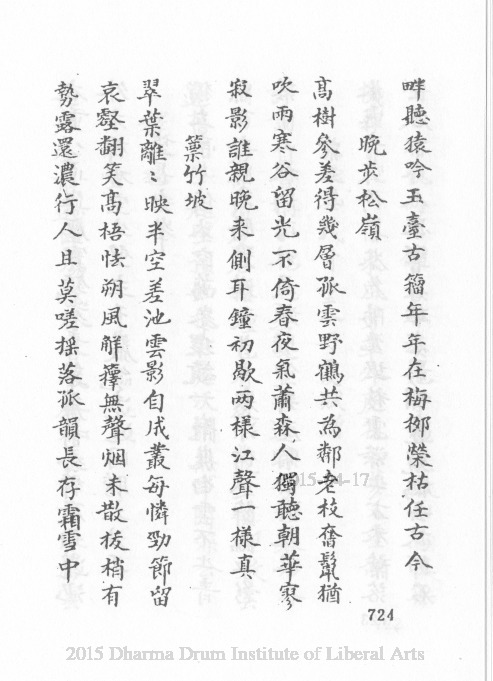 畔聽猿吟玉臺古籀年年在梅柳榮枯任古今
晚步松嶺
高樹參差得幾層孤雲野鶴共為鄰老枝奮鬣猶
吹雨寒谷留光不倚春夜氣蕭森人獨聽朝華寥
寂影誰親晚来側耳鐘初歇两樣江聲一樣真
竹坡
翠葉離〻映半空差池雲影自成叢每憐勁節留
哀壑翻笑高梧怯朔風解籜無聲烟未散拔梢有
勢露還濃行人且莫嗟摇落孤韻長存霜雪中
724
2015 Dharma Drum Institute of Liberal Arts